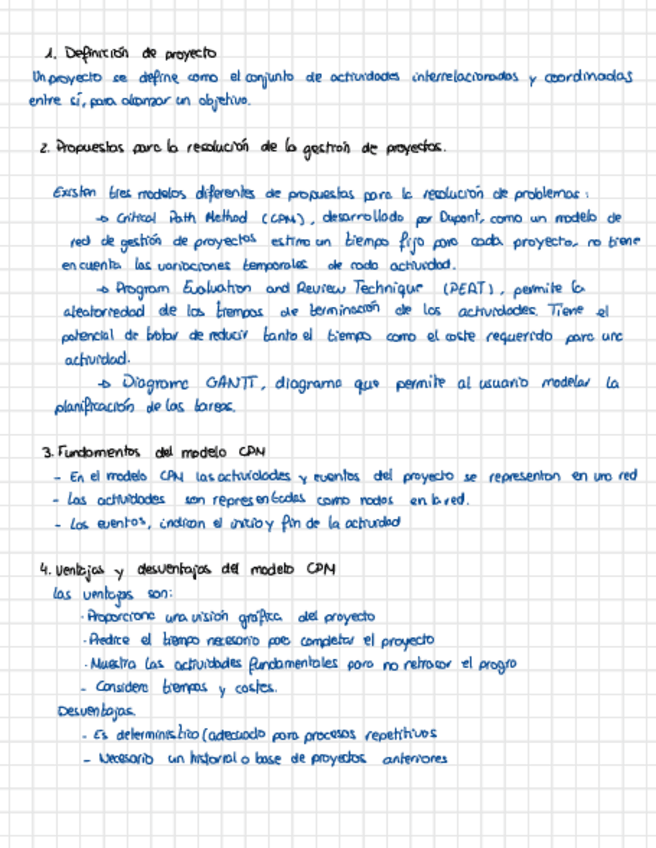 1. Definición de proyecto
Un proyecto se define como el conjunto de actividades interrelacionadas y coordinadas
entre sí, para alcanzar un objetivo.
2. Propuestas para la resolución de la gestión de proyectos.
Existen tres modelos diferentes de propuestas para la resolución de problemas:
→ Critical Path Method (CPM), desarrollado por Dupont, como un modelo de
red de gestión de proyectos estima un tiempo fijo para cada proyecto, no tiene
en cuenta las variaciones temporales de cada actividad.
→ Program Evaluation and Review Technique (PERT), permite la
aleatoriedad de los tiempos de terminación de las actividades. Tiene el
potencial de de reducir tanto el tiempo como el coste requerido para una
actividad.
→ Diagrama GANTT, diagrama que permite al usuario modelar la
planificación de las tareas.
3. Fundamentos del modelo CPM
- En el modelo CPM las actividades y eventos del proyecto se representan en una red
- Las actividades son representadas como nodos en la red.
- Los eventos, indican el inicio y fin de la actividad
4. Ventajas y desventajas del modelo CPM
Las ventajas son:
· Proporciona una visión gráfica del proyecto
· Predice el tiempo necesario para completar el proyecto
· Muestra las actividades fundamentales para no retrasar el progra
- Considera tiempos y costes.
Desventajas
- Es determinístico (adecuado para procesos repetitivos
- Necesario un historial o base de proyectos anteriores